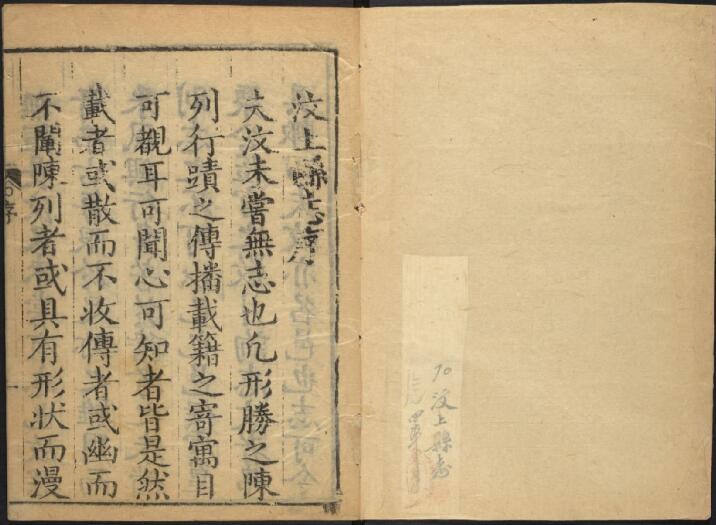 汶上縣志序
夫汶未嘗無志也凡形勝之陳
列行蹟之傳播載籍之寄寓目
可覩耳可聞心可知者皆是然
載者或散而不收傳者或幽而
不闡陳列者或具有形状而漫
序
70 汶上縣志